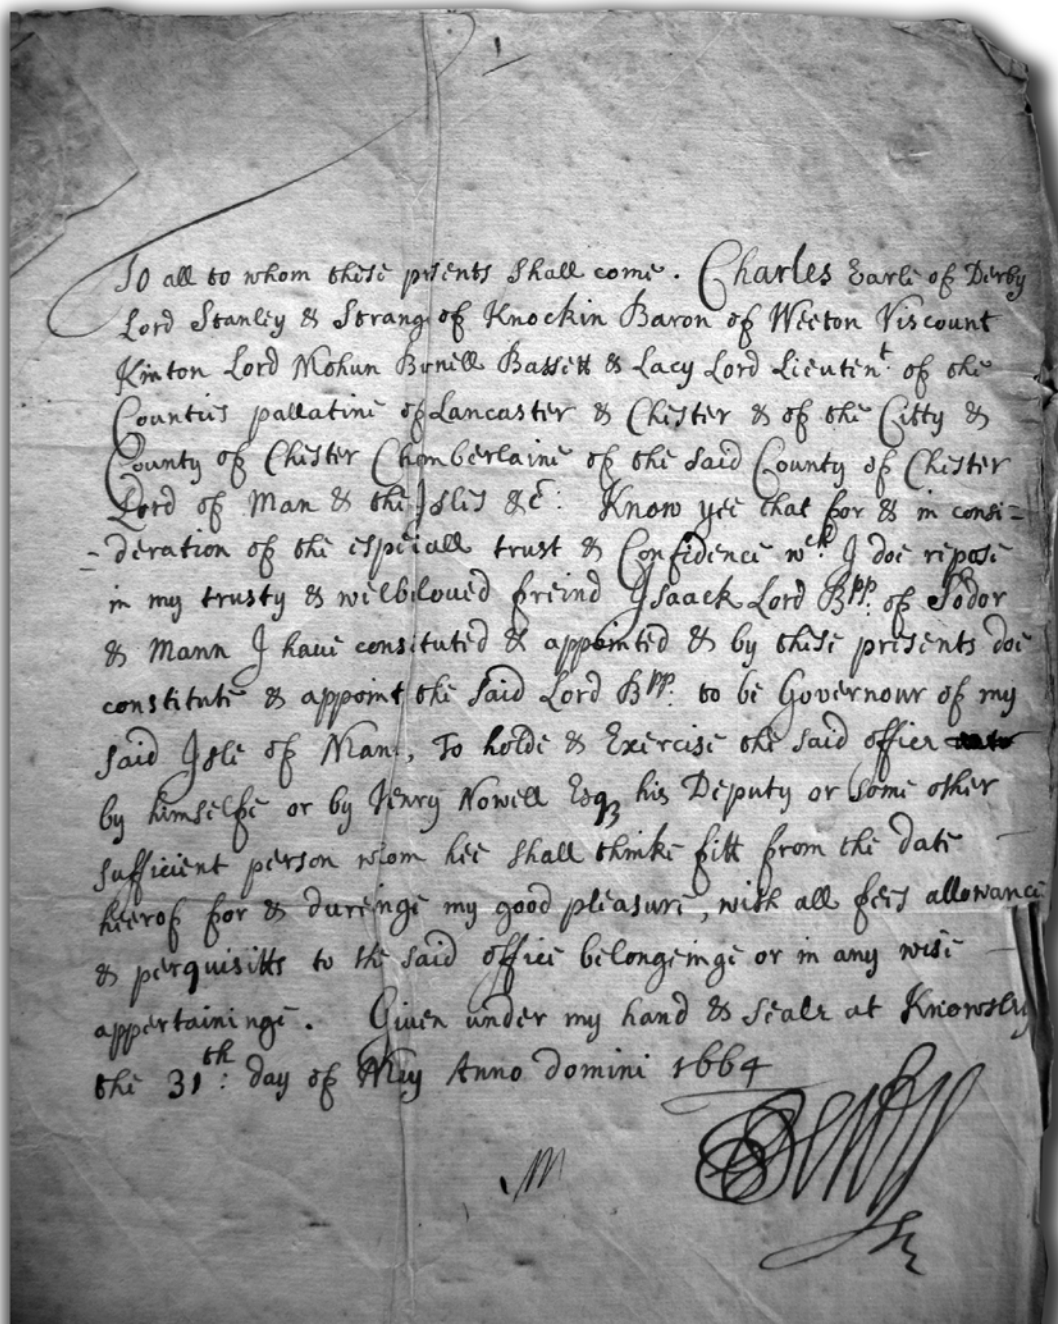 To all to whom these prsents shall come. Charles Earle of Derby
Lord Stanley & Strang of Knockin Baron of Weeton Viscount
Kinton Lord Mohun Burnell Bassett & Lacy Lord Lieutent. of the
Counties pallatine of Lancaster & Chester & of the Citty &
County of Chester Chamberlaine of the said County of Chester
Lord of Man & the Isles &c: Know yee that for & in consi=
-deration of the especiall trust & Confidence wch. I doe repose
in my trusty & welbeloued freind Isaack Lord Bpp. of Sodor
& Mann I haue consituted & appointed & by these presents doe
constitute & appoint the said Lord Bpp. to be Governour of my
said Isle of Mann, To holde & Exercise the said office
by himselfe or by Henry Nowell Esqz his Deputy or some other
sufficient person whom hee shall thinke fitt from the date
heerof for & duringe my good pleasure, with all fees allowance
& perquisitts to the said office belongeinge or in any wise
appertaininge. Given under my hand & seale at Knowsley
the 31th: day of May Anno Domini 1664
Derby